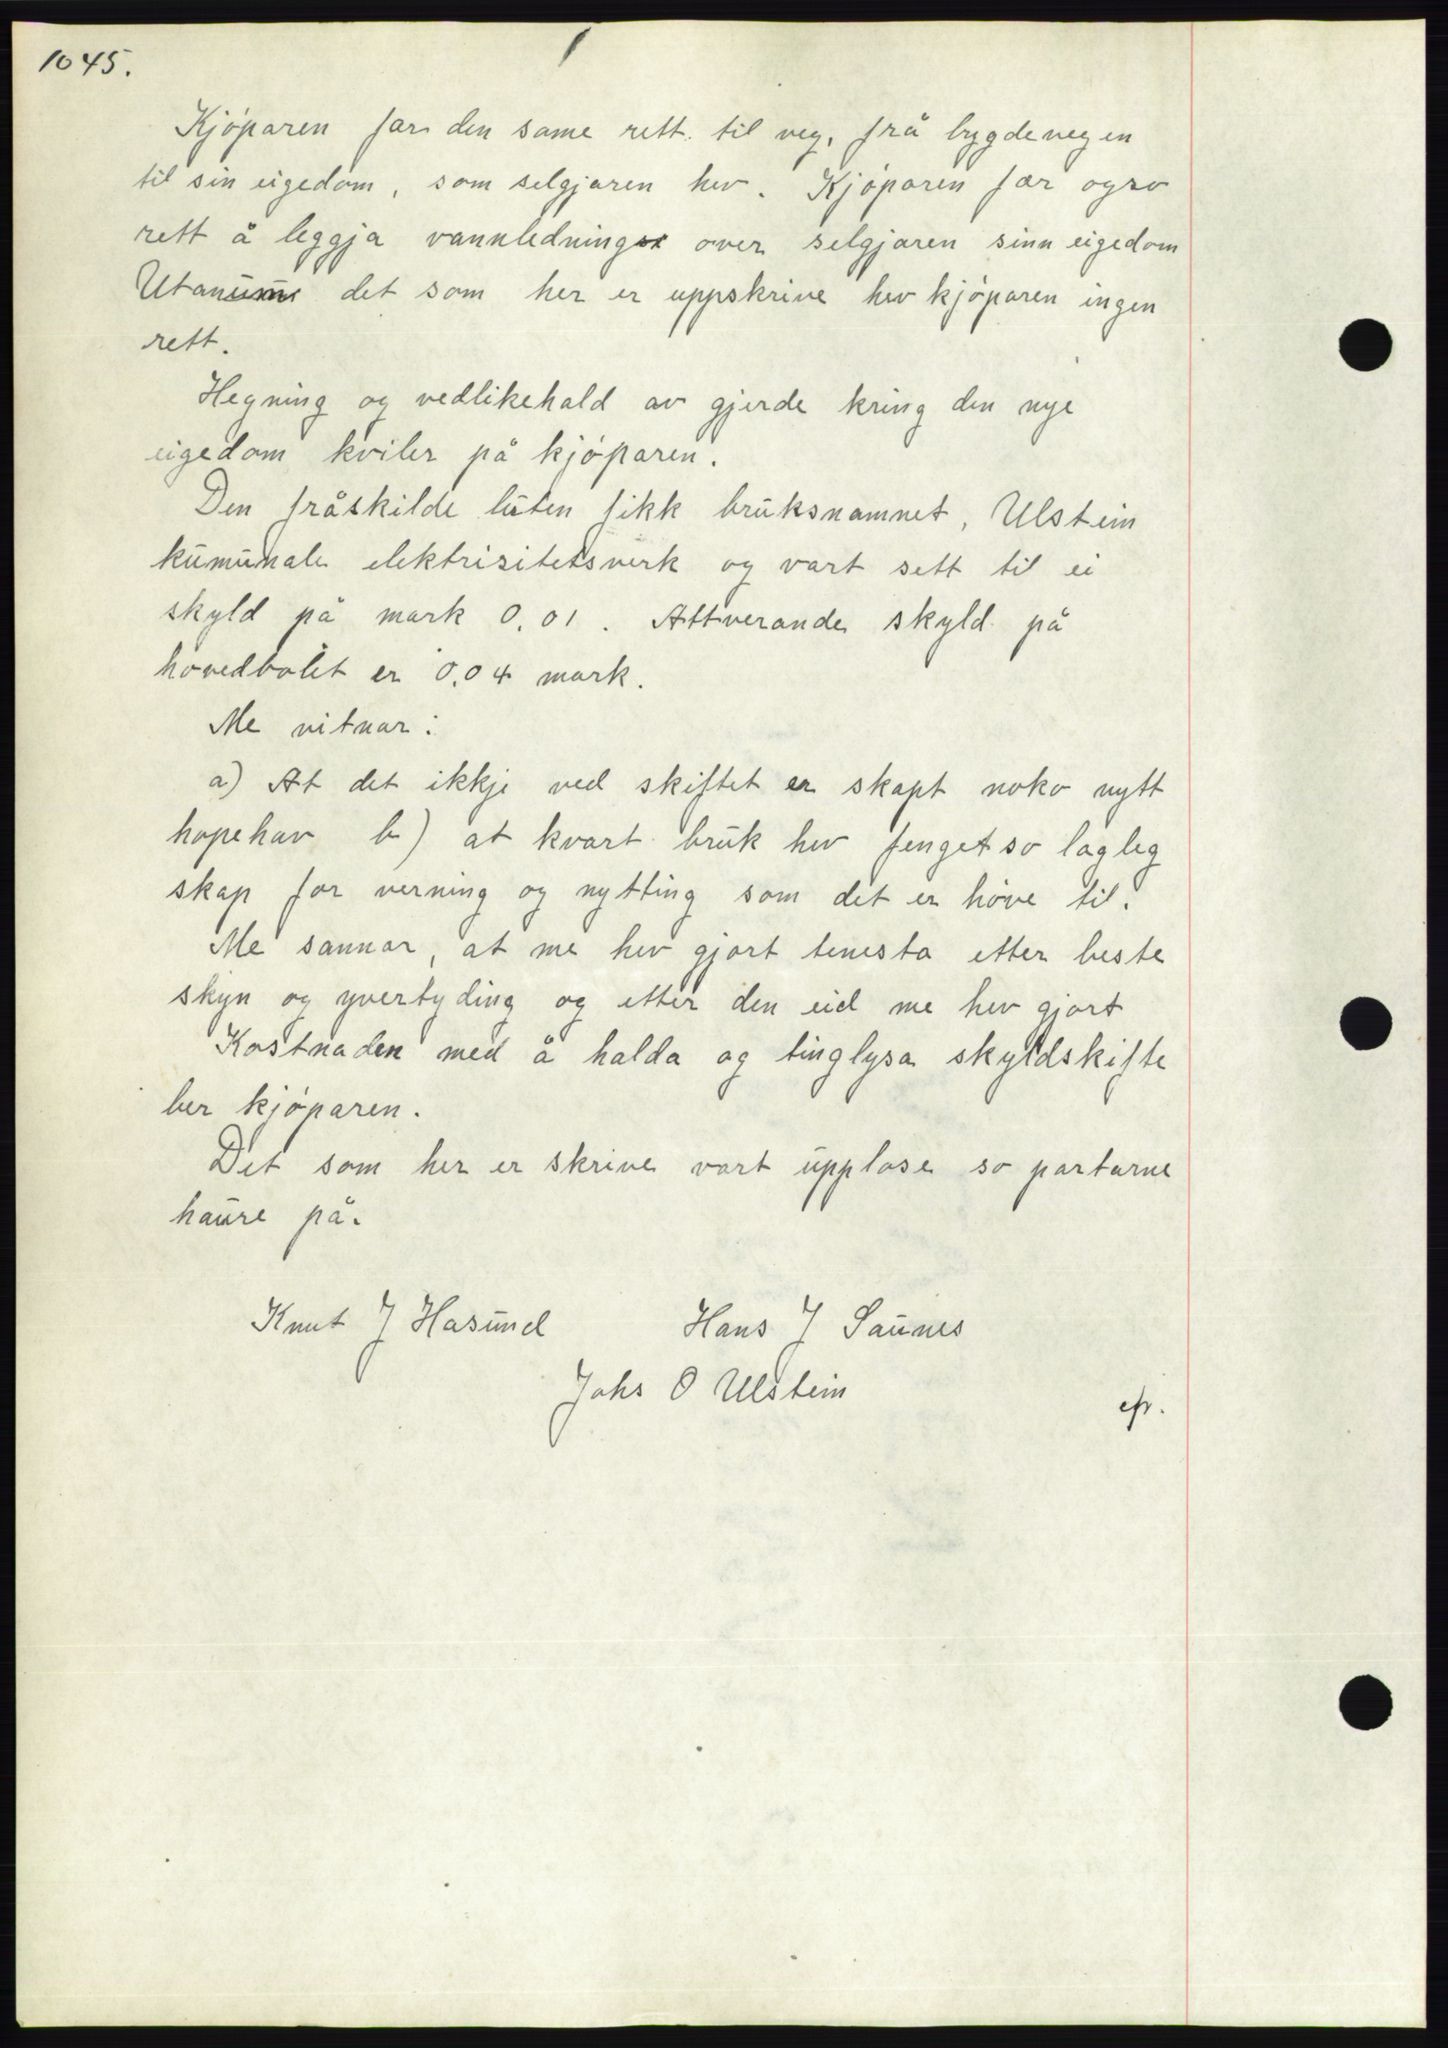 1045.
Kjóparen far den same rett til veg, frå bygdevegen
til sin eigedom, som selgjaren hev. Kjóparen fær ogso
rett å leggja vannledning over selgjaren sinn eigedom
Utanum det som her er uppskrive hev kjóparen ingen
rett.
Hegning og vedlikehald av gjerde kring den nye
eigedom kviler på kjóparen.
Den fråskilde luten fikk bruksnamnet, Ulstein
kumunale elektrisitetsverk og vart sett til ei
skyld på mark 0,01. Attverande skyld på
hovedbolet er 0,04 mark.
Me vitnar:
a) At det ikkje ved skiftet er skapt noko nytt
hopehav b) at kvart bruk hev fenget so lagleg
skap for verning og nytting som det er hóve til.
Me sannar, at me hev gjort tenesta etter beste
skyn og yvertyding og etter den eid me hev gjort
Kostnaden med å halda og tinglysa skyldskifte
ber kjóparen.
Det som her er skrive vart upplese so partarne
haure på.
Knut J Hasund Hans J Saunes
Johs O Ulstein
efr.